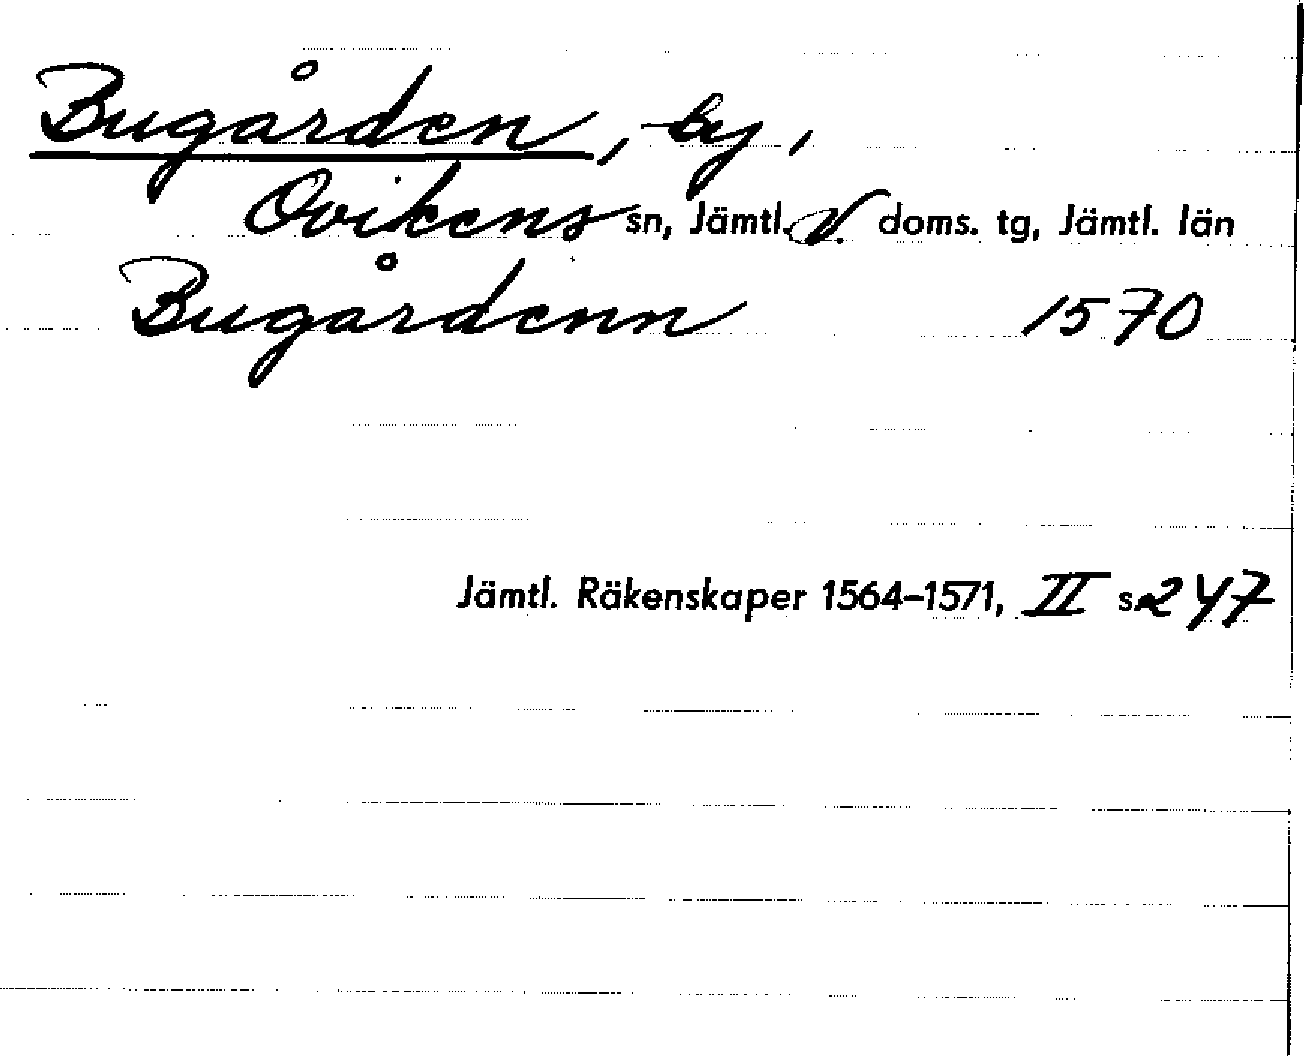 Bugården, by,
Ovikens sn, Jämtl. V. doms. tg, Jämtl. län
Bugårdenn 1570
Jämtl. Räkenskaper 1564–1571, II s. 247